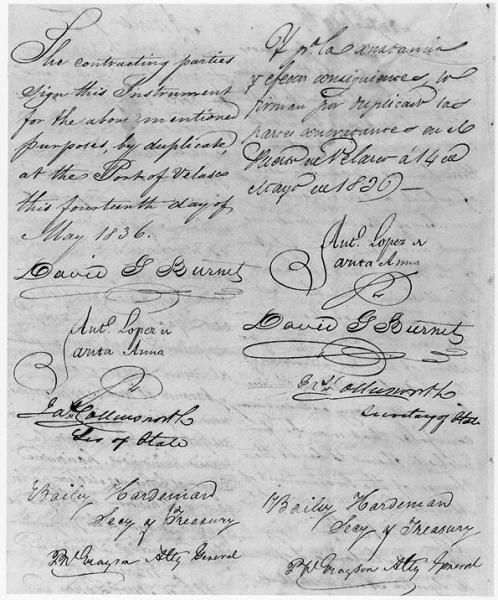 The contracting parties
sign this Instrument
for the above mentioned
purposes, by duplicate,
at the Port of Velasco
this fourteenth day of
May 1836.
David G Burnet
Ant.o Lopez de
Santa Anna
Jas Collinsworth
Sec of State
Baily Hardeman
Secy of Treasury
P W Grayson Atty General
Y p.a la constancia
y efectos consiguientes, lo
firman por duplicado las
partes contratantes en el
Puerto de Velasco á 14 de
Mayo de 1836—
Ant.o Lopez de
Santa Anna
David G Burnet
Jas Collinsworth
Secretary of State
Baily Hardeman
Secy of Treasury
P W Grayson Atty General